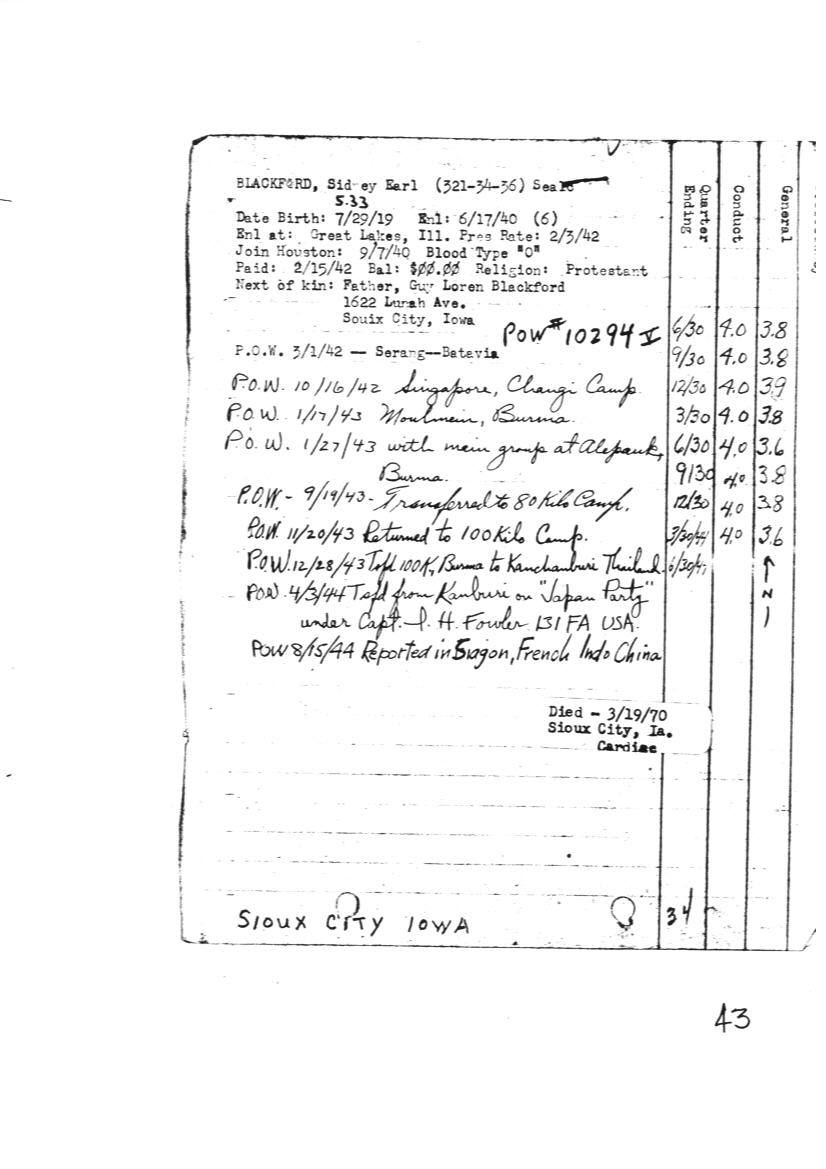 BLACKFORD, Sidney Earl (321-34-36) Sea1c
5.33
Date Birth: 7/29/19 Enl: 6/17/40 (6)
Enl at: Great Lakes, Ill. Pres Rate: 2/3/42
Join Houston: 9/7/40 Blood Type "O"
Paid: 2/15/42 Bal: $00.00 Religion: Protestant
Next of kin: Father, Guy Loren Blackford
1622 Ave.
Souix City, Iowa
POW# 10294 V
P.O.W. 3/1/42 — Serang--Batavia
P.O.W. 10/16/42 Singapore, Changi Camp.
P.O.W. 1/17/43 Moulmein, Burma.
P.O.W. 1/27/43 with main group at Alepauk,
Burma.
P.O.W. - 9/19/43 - Transferred to 80 Kilo Camp.
P.O.W. 11/20/43 Returned to 100 Kilo Camp.
P.O.W. 12/28/43 Tsfd 100K, Burma to Kanchanburi Thailand.
POW. 4/3/44 Tsfd from Kanburi on "Japan Party"
under Capt. I. H. Fowler 131 FA USA.
POW 8/15/44 Reported in Siagon, French Indo China
Died - 3/19/70
Sioux City, Ia.
Cardiac
SIOUX CITY IOWA
Quarter Ending Conduct General
6/30 4.0 3.8
9/30 4.0 3.8
12/30 4.0 3.9
3/30 4.0 3.8
6/30 4.0 3.6
9/30 4.0 3.8
12/30 4.0 3.8
3/30/44 4.0 3.6
34
43